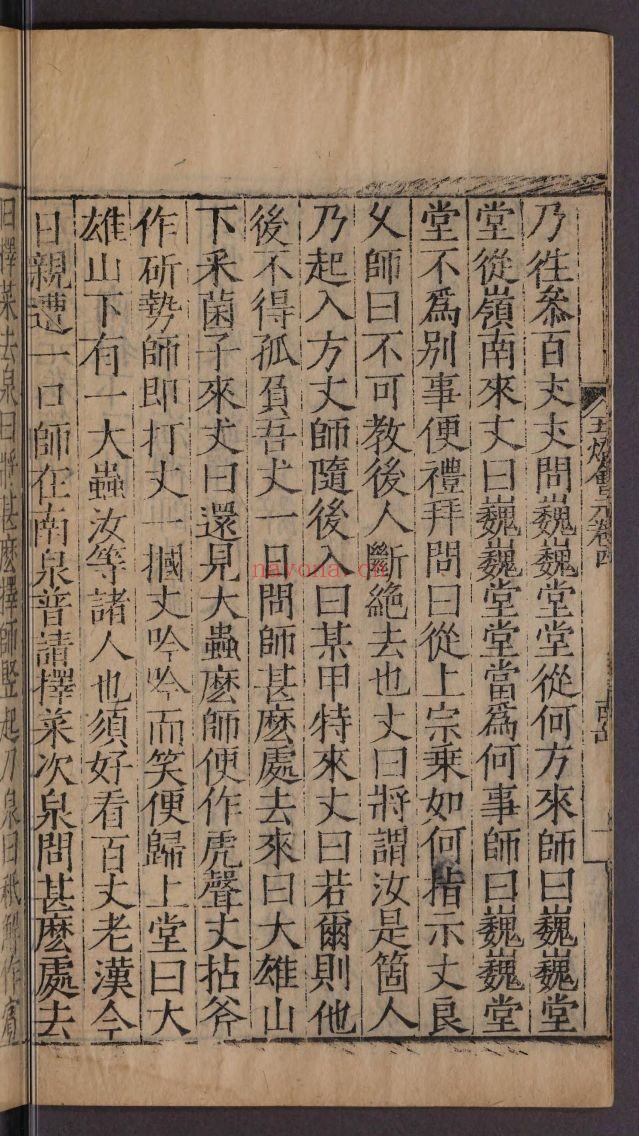 乃徃叅百丈丈問巍巍堂堂從何方來師曰巍巍堂
堂從嶺南來丈曰巍巍堂堂當爲何事師曰巍巍堂
堂不爲別事便禮拜問曰從上宗乗如何指示丈良
乆師曰不可教後人斷絶去也丈曰將謂汝是箇人
乃起入方丈師隨後入曰某甲特來丈曰若爾則他
後不得孤負吾丈一日問師甚麽處去來曰大雄山
下采菌子來丈曰還見大蟲麽師便作虎聲丈拈斧
作斫勢師即打丈一摑丈吟吟而笑便歸上堂曰大
雄山下有一大蟲汝等諸人也須好看百丈老漢今
日親遭一口師在南泉普請擇菜次泉問甚麽處去
曰擇菜去泉曰將甚麽擇師竪起刀泉曰祇解作賓
五燈會元卷四
nayona.cn